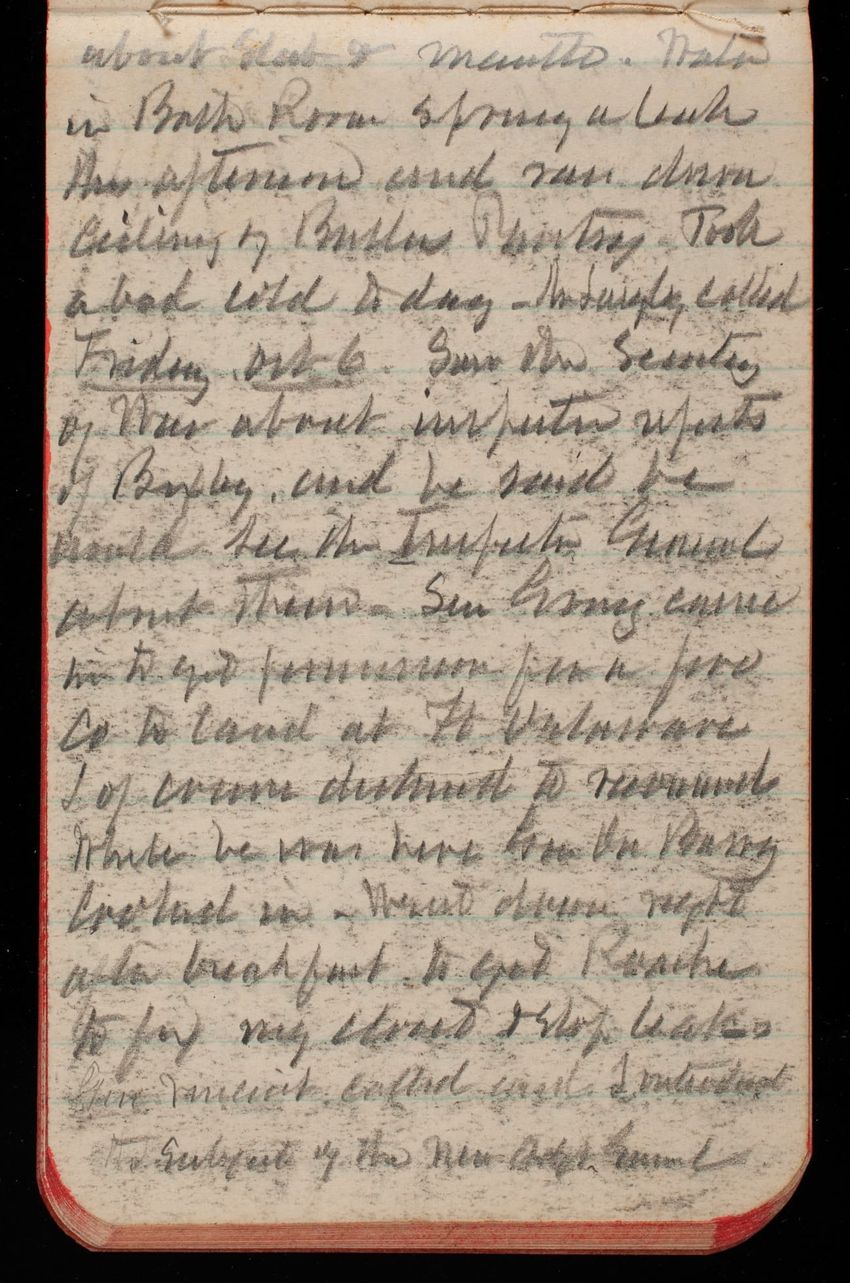 about Slab & mantle. Water
in Bath Room sprung a leak
this afternoon and ran down
Ceiling of Butlers Pantry. Took
a bad cold to day - called
Friday Oct 6. Saw the Secretary
of War about inspector reports
of Bixby, and he said he
would see the Inspector General
about them - Sen Gray came
in to get permission for a
Co to land at Ft Delaware
I of course declined to recommend
While he was here
looked in - Went down right
after breakfast to get Roache
to fix my closet & stop leaks
Gen called and I introduced
the subject of the New Adgt General